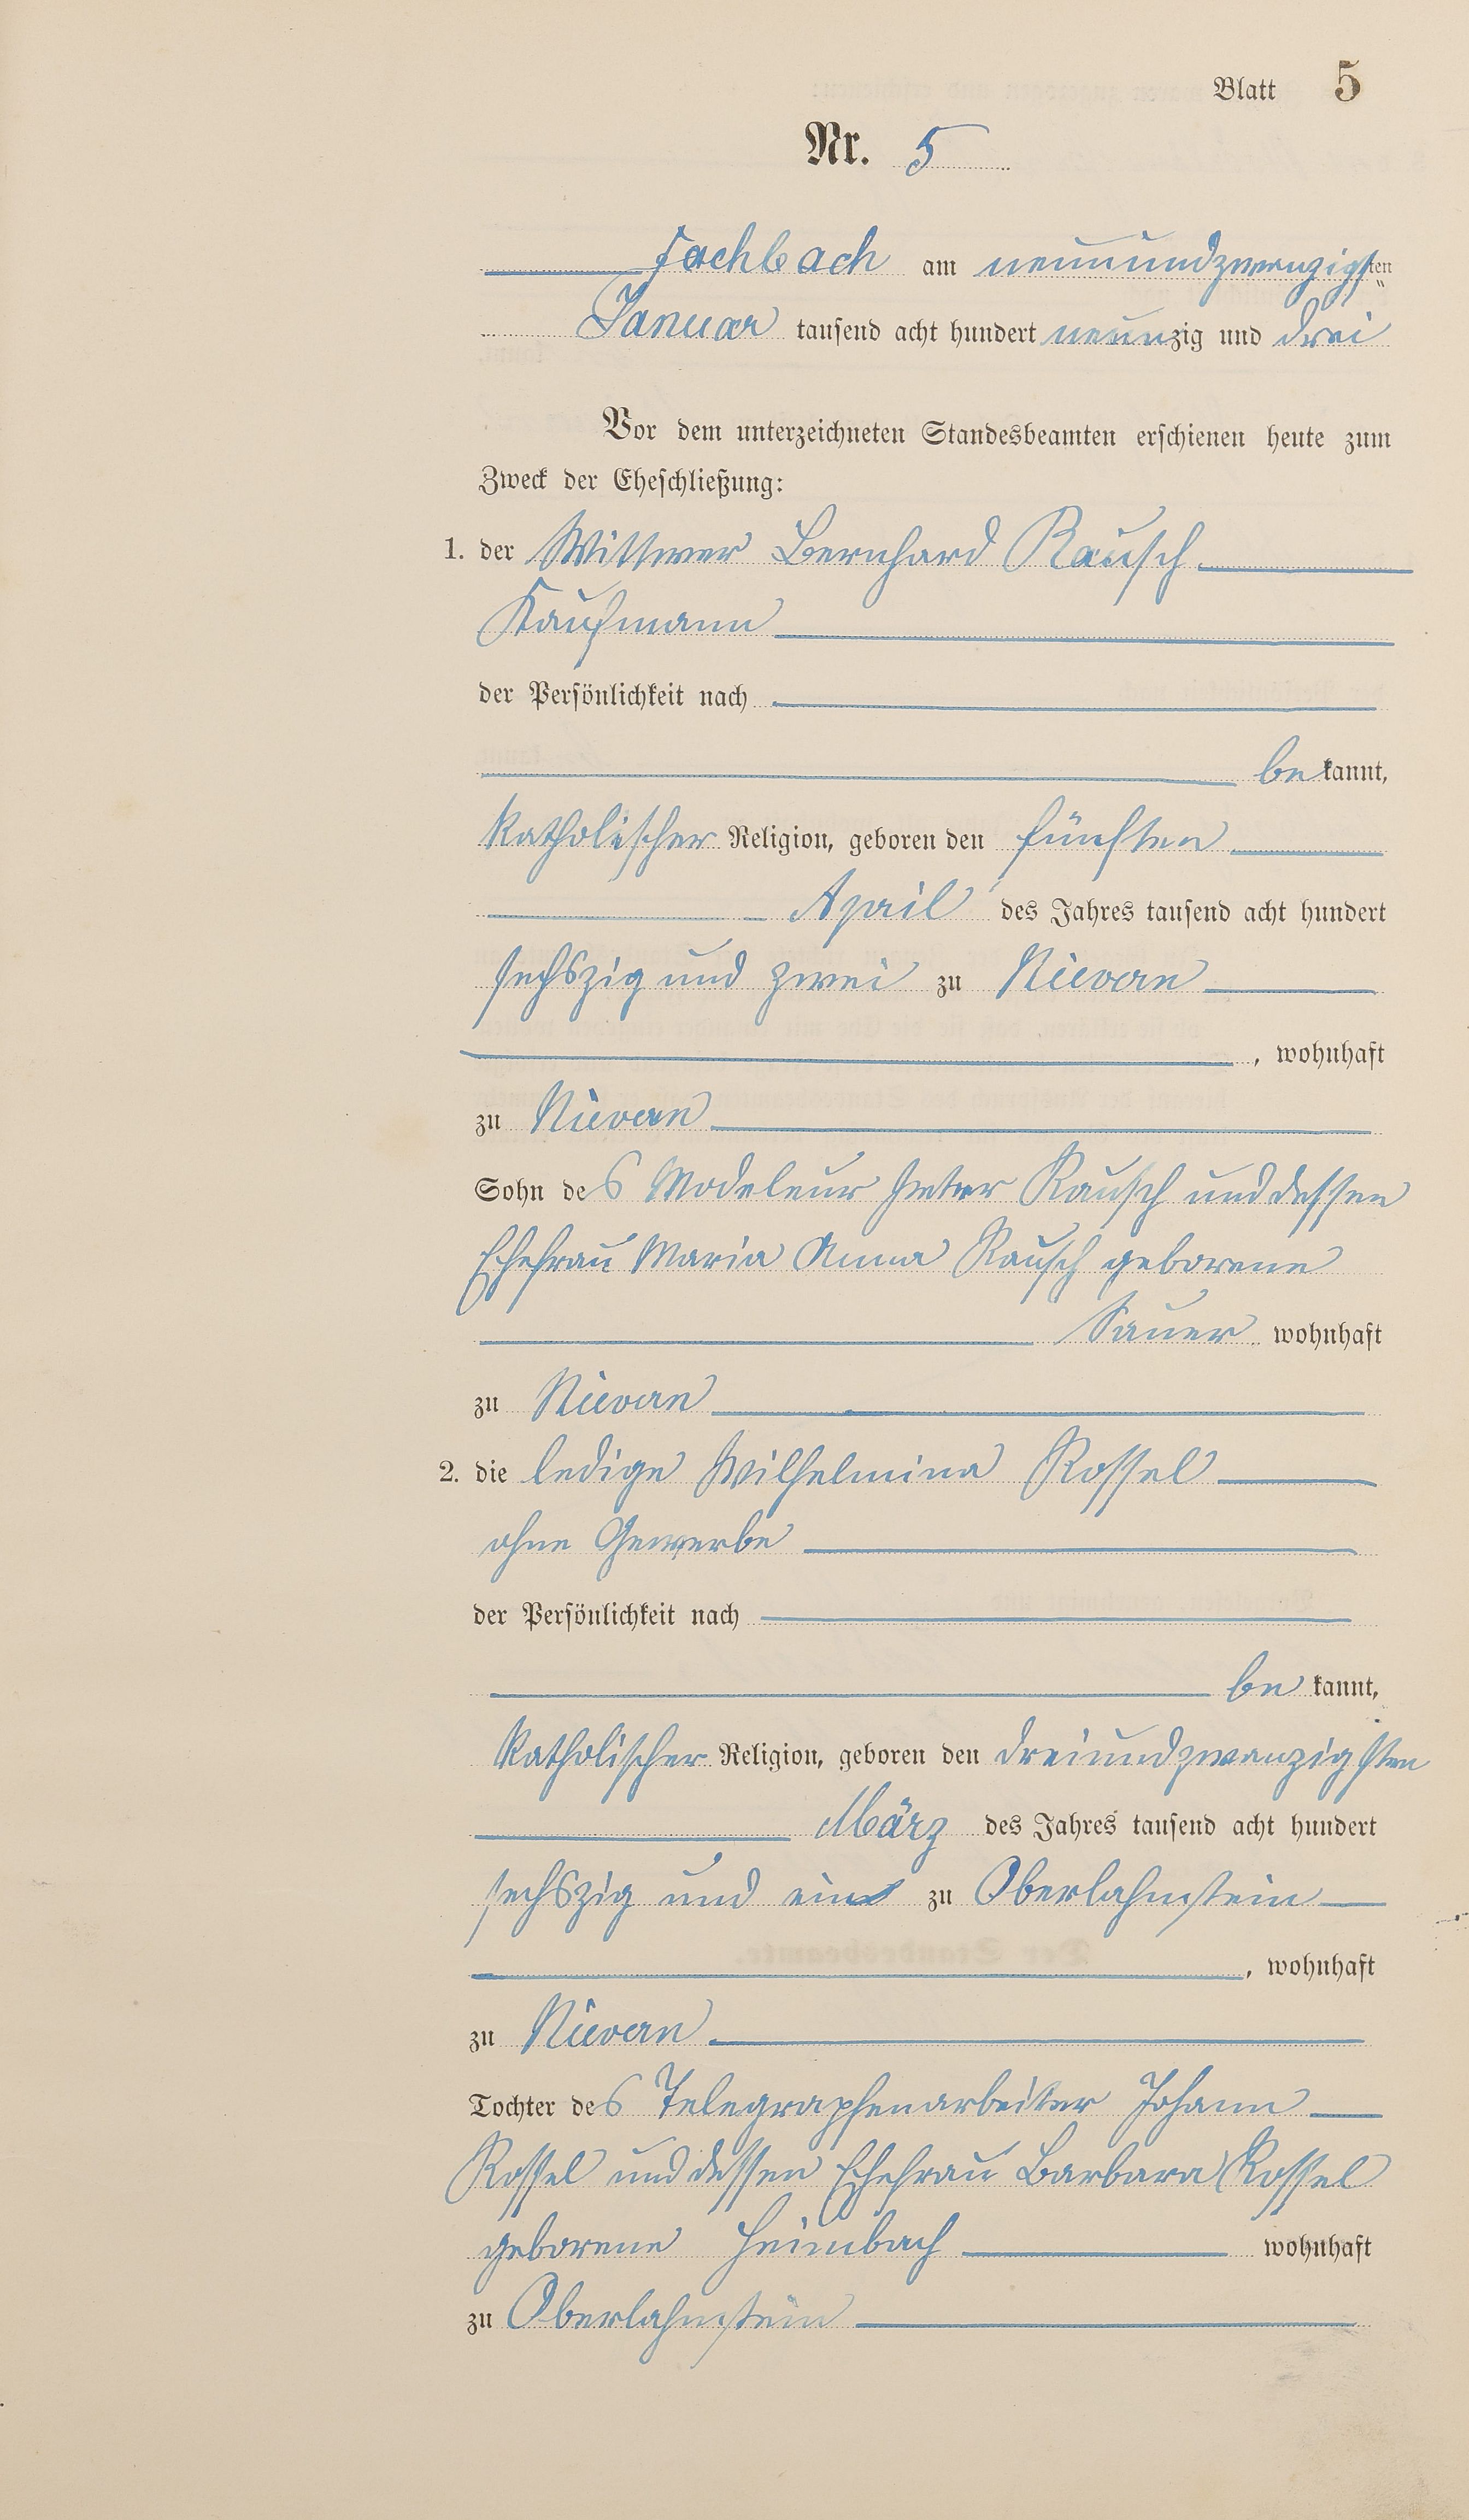 Blatt 5
Nr. 5
Fachbach am neunundzwanzigsten
Januar tausend acht hundert neunzig und drei
Vor dem unterzeichneten Standesbeamten erschienen heute zum
Zweck der Eheschließung:
1. der Wittwer Bernhard Rausch
Kaufmann
der Persönlichkeit nach
be kannt,
katholischer Religion, geboren den fünften
April des Jahres tausend acht hundert
sechszig und zwei zu Nievern
, wohnhaft
zu Nievern
Sohn des Modeleur Peter Rausch und dessen
Ehefrau Maria Anna Rausch geborene
Sauer wohnhaft
zu Nievern
2. die ledige Wilhelmina Rossel
ohne Gewerbe
der Persönlichkeit nach
be kannt,
katholischer Religion, geboren den dreiundzwanzigsten
März des Jahres tausend acht hundert
sechszig und eins zu Oberlahnstein
, wohnhaft
zu Nievern
Tochter des Telegraphenarbeiter Johann
Rossel und dessen Ehefrau Barbara Rossel
geborene Heimbach wohnhaft
zu Oberlahnstein